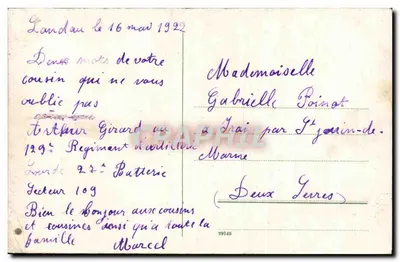 Landau le 16 mai 1922
Deux mots de votre
cousin qui ne vous
oublie pas
Arthur Girard au
129e Regiment d'artillerie
Lourde 22e Batterie
Secteur 109
Bien le bonjour aux cousins
et cousines ainsi qu'a toute la
famille Marcel
Mademoiselle
Gabrielle Poinot
a Irai par St jouin-de-
Marne
Deux Sevres